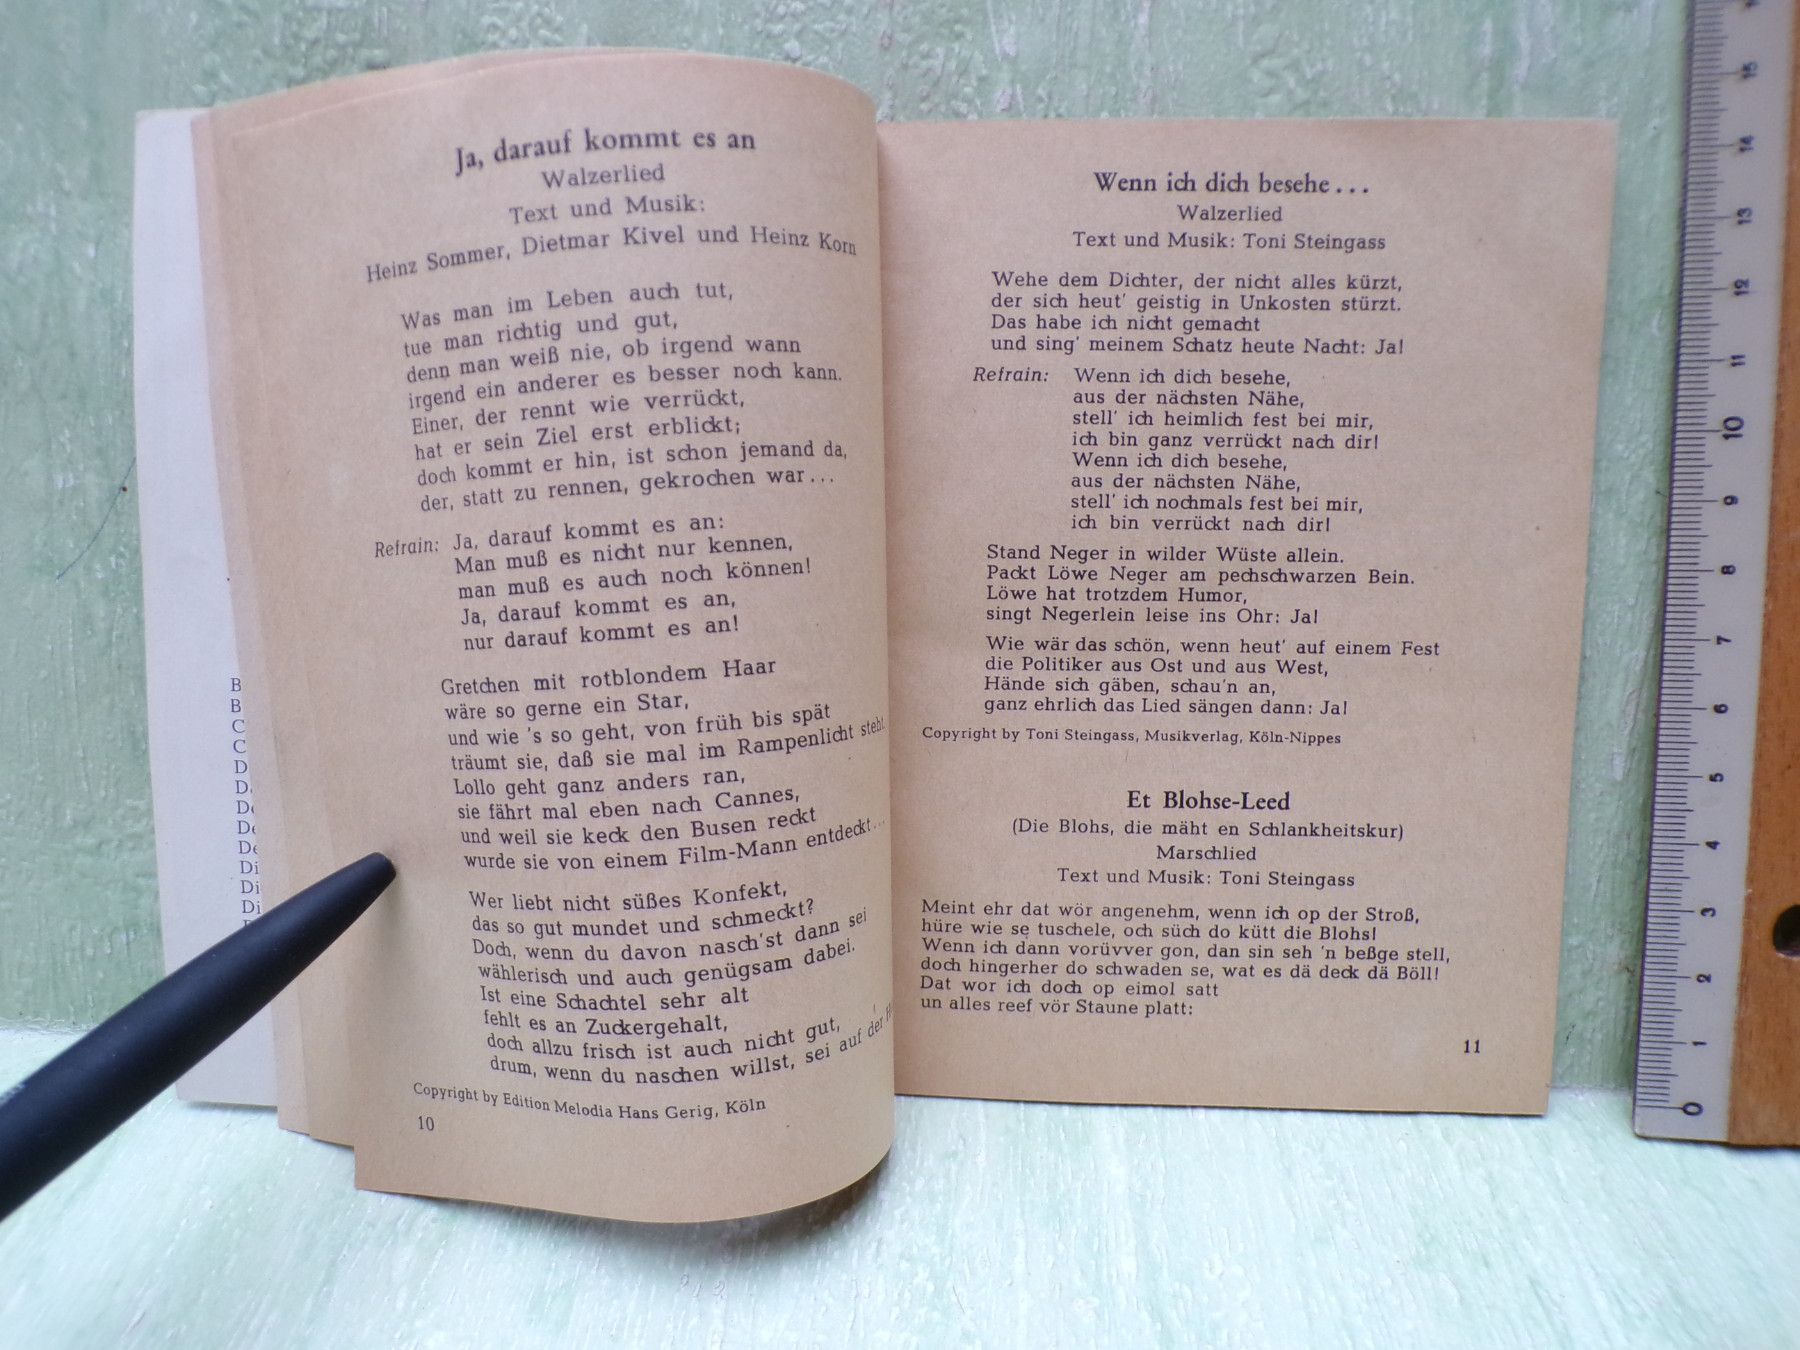 Ja, darauf kommt es an
Walzerlied
Text und Musik:
Heinz Sommer, Dietmar Kivel und Heinz Korn
Was man im Leben auch tut,
tue man richtig und gut,
denn man weiß nie, ob irgend wann
irgend ein anderer es besser noch kann.
Einer, der rennt wie verrückt,
hat er sein Ziel erst erblickt;
doch kommt er hin, ist schon jemand da,
der, statt zu rennen, gekrochen war...
Refrain: Ja, darauf kommt es an:
Man muß es nicht nur kennen,
man muß es auch noch können!
Ja, darauf kommt es an,
nur darauf kommt es an!
Gretchen mit rotblondem Haar
wäre so gerne ein Star,
und wie 's so geht, von früh bis spät
träumt sie, daß sie mal im Rampenlicht steht.
Lollo geht ganz anders ran,
sie fährt mal eben nach Cannes,
und weil sie keck den Busen reckt
wurde sie von einem Film-Mann entdeckt...
Wer liebt nicht süßes Konfekt,
das so gut mundet und schmeckt?
Doch, wenn du davon nasch'st dann sei
wählerisch und auch genügsam dabei.
Ist eine Schachtel sehr alt
fehlt es an Zuckergehalt,
doch allzu frisch ist auch nicht gut,
drum, wenn du naschen willst, sei auf der
Copyright by Edition Melodia Hans Gerig, Köln
10
B
B
C
C
D
D
De
De
De
Di
Di
Di
Wenn ich dich besehe...
Walzerlied
Text und Musik: Toni Steingass
Wehe dem Dichter, der nicht alles kürzt,
der sich heut' geistig in Unkosten stürzt.
Das habe ich nicht gemacht
und sing' meinem Schatz heute Nacht: Ja!
Refrain: Wenn ich dich besehe,
aus der nächsten Nähe,
stell' ich heimlich fest bei mir,
ich bin ganz verrückt nach dir!
Wenn ich dich besehe,
aus der nächsten Nähe,
stell' ich nochmals fest bei mir,
ich bin verrückt nach dir!
Stand Neger in wilder Wüste allein.
Packt Löwe Neger am pechschwarzen Bein.
Löwe hat trotzdem Humor,
singt Negerlein leise ins Ohr: Ja!
Wie wär das schön, wenn heut' auf einem Fest
die Politiker aus Ost und aus West,
Hände sich gäben, schau'n an,
ganz ehrlich das Lied sängen dann: Ja!
Copyright by Toni Steingass, Musikverlag, Köln-Nippes
Et Blohse-Leed
(Die Blohs, die mäht en Schlankheitskur)
Marschlied
Text und Musik: Toni Steingass
Meint ehr dat wör angenehm, wenn ich op der Stroß,
hüre wie se tuschele, och süch do kütt die Blohs!
Wenn ich dann vorüvver gon, dan sin seh 'n beßge stell,
doch hingerher do schwaden se, wat es dä deck dä Böll!
Dat wor ich doch op eimol satt
un alles reef vör Staune platt:
11
15
14
13
12
11
10
9
8
7
6
5
4
3
2
1
0